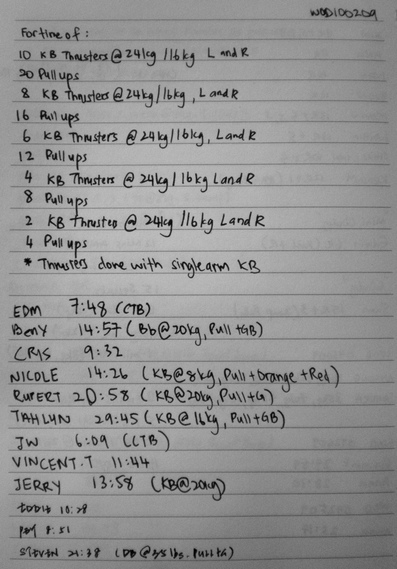 WOD100209
For time of :
10 KB Thrusters @ 24kg /16kg L and R
20 Pull ups
8 KB Thrusters @ 24kg/16kg, L and R
16 Pull ups
6 KB Thrusters @ 24kg/16kg, L and R
12 Pull ups
4 KB Thrusters @ 24kg/16kg L and R
8 Pull ups
2 KB Thruster @ 24kg /16kg L and R
4 Pull ups
* Thrusters done with single arm KB
EDM 7:48 (CTB)
14:57 (Bb@20kg, Pull+GB)
CRIS 9:32
NICOLE 14:26 (KB@8kg, Pull+Orange+Red)
RUPERT 20:58 (KB@20kg, Pull+G)
29:45 (KB@16kg, Pull+GB)
JW 6:09 (CTB)
VINCENT.T 11:44
JERRY 13:58 (KB@20kg)
10:28
8:51
STEVEN